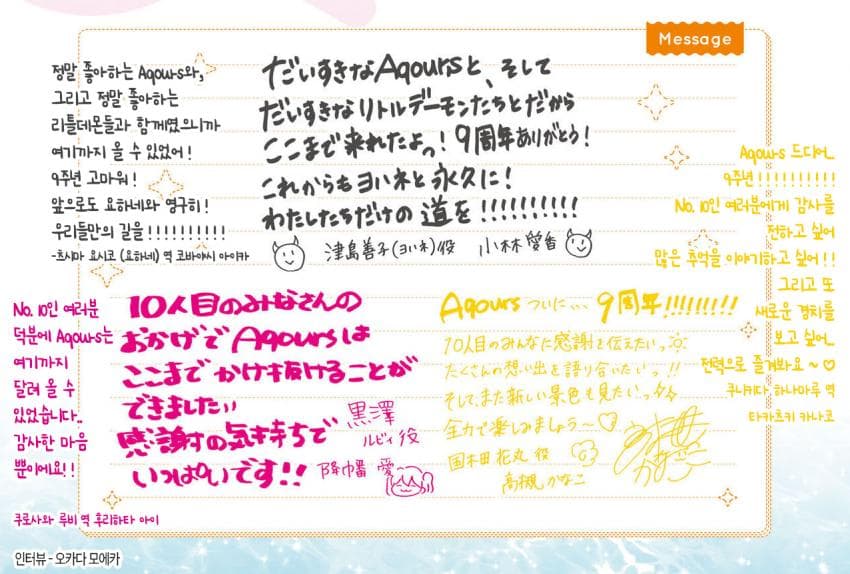 Message
정말 좋아하는 Aqours와,
그리고 정말 좋아하는
리틀데몬들과 함께였으니까
여기까지 올 수 있었어!
9주년 고마워!
앞으로도 요하네와 영구히!
우리들만의 길을!!!!!!!!!!
-츠시마 요시코 (요하네) 역 코바야시 아이카
だいすきなAqoursと、そして
だいすきなリトルデーモンたちとだから
ここまで来れたよっ!9周年ありがとう!
これからもヨハネと永久に!
わたしたちだけの道を!!!!!!!!!!
津島善子(ヨハネ)役 小林愛香
Aqours 드디어..
9주년!!!!!!!!!!
No. 10인 여러분에게 감사를
전하고 싶어
많은 추억을 이야기하고 싶어!!
그리고 또
새로운 경치를
보고 싶어..
전력으로 즐겨봐요~♡
쿠니키다 하나마루 역
타카츠키 카나코
No. 10인 여러분
덕분에 Aqours는
여기까지
달려 올 수
있었습니다..
감사한 마음
뿐이에요!!
쿠로사와 루비 역 후리하타 아이
10人目のみなさんの
おかげでAqoursは
ここまでかけ抜けることが
できました!!
感謝の気持ちで
いっぱいです!!
黒澤
ルビィ役
降幡 愛
Aqoursついに… 9周年!!!!!!!!!
10人目のみんなに感謝を伝えたいっ
たくさんの想い出を語り合いたいっ!!
そして、また新しい景色も見たいっ
全力で楽しみましょう〜♡
国木田花丸役
高槻かなこ
인터뷰 - 오카다 모에카